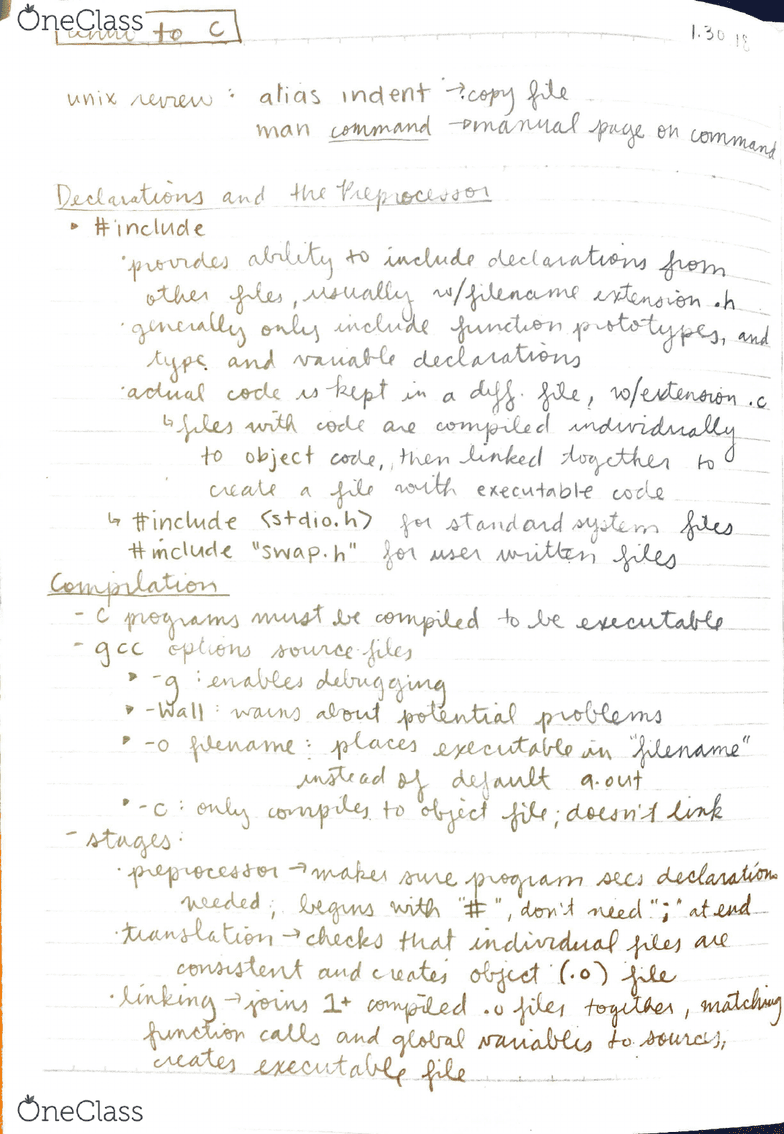 OneClass
to C
1.30 18
unix review : alias indent → copy file
man command → manual page on command
Declarations and the Preprocessor
• #include
• provides ability to include declarations from
other files, usually w/filename extension .h
• generally only include function prototypes, and
type and variable declarations
• actual code is kept in a diff. file, w/extension .c
↳ files with code are compiled individually
to object code, then linked together to
create a file with executable code
↳ #include <stdio.h> for standard system files
#include "swap.h" for user written files
Compilation
- C programs must be compiled to be executable
- gcc options source-files
• -g : enables debugging
• -Wall : warns about potential problems
• -o filename : places executable in "filename"
instead of default a.out
• -c : only compiles to object file; doesn't link
- stages :
• preprocessor → makes sure program sees declarations
needed; begins with "#", don't need ";" at end
• translation → checks that individual files are
consistent and creates object (.o) file
• linking → joins 1+ compiled .o files together, matching
function calls and global variables to sources,
creates executable file
OneClass